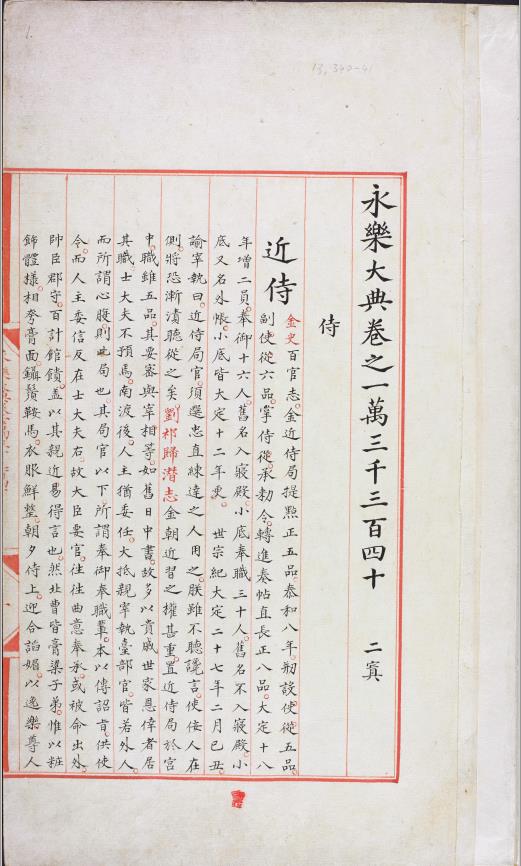 1.
13,340-41
永樂大典卷之一萬三千三百四十 二寘
侍
近侍
金史百官志。金近侍局提點正五品。泰和八年刱設。使從五品。
副使從六品。掌侍從。承勑令。轉進奏帖。直長正八品。大定十八
年增二員。奉御十六人。舊名入寢殿小底。奉職三十人。舊名不入寢殿小
底。又名外帳小底。皆大定十二年更。 世宗紀大定二十七年二月己丑。
諭宰執曰。近侍局官。須選忠直練達之人用之。朕雖不聽讒言。使佞人在
側。將恐漸漬聽從之矣。劉祁歸潛志金朝近習之權甚重。置近侍局於宮
中。職雖五品。其要審與宰相等。如舊日中書。故多以貴戚世家恩倖者居
其職。士大夫不預焉。南渡後。人主猶委任。大抵視宰執臺部官。皆若外人。
而所謂心腹。則此局也。其局官以下所謂奉御奉職輩。本以傳詔旨。供使
令。而人主委信反在士大夫右。故大臣要官。往往曲意奉承。或被命出外。
帥臣郡守。百計館饋。蓋以其親近易得言也。然此曹皆膏粱子弟。惟以粧
飾體樣相夸。膏面鑷鬚。鞍馬衣服鮮整。朝夕侍上。迎合諂媚。以逸樂導人